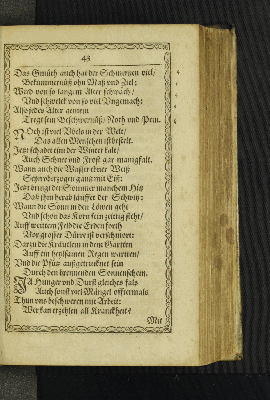 43
Das Gmüth auch hat der Schmertzen viel/
Bekümmernüß ohn Maß und Ziel:
Wird von so langem Alter schwach/
Und schwebt von so viel Ungemach:
Also jedes Alter gemein
Tregt sein Beschwernüß/Noth und Pein.
Noch ist viel Ubels in der Welt/
Das allen Menschen ist bestelt.
Jetz schadet ihn der Winter kalt/
Auch Schnee und Frost gar manigfalt.
Wann auch die Wasser ohne Weiß
Seynd gantz mit Eiß:
Jetz bringt der Sommer manchem Hitz
Das ihm herab läufft der Schwitz:
Wann die Sonn in den Löwen geht
Und schon das Korn sein zeitig steht/
Auff weittem Feld die Erden forth
Vor grosser Dürre ist verschmort:
Darzu die Kräutlein in dem Gartten
Auff ein heylsamen Regen wartten/
Und die Pfütz außgetrucknet sein
Durch den brennenden Sonnenschein.
JA Hunger und Durst gleiches fals
Auch sonst viel Mängel offtermals
Thun uns beschweren mit Arbeit:
Wer kan erzehlen all Kranckheit?
Mit